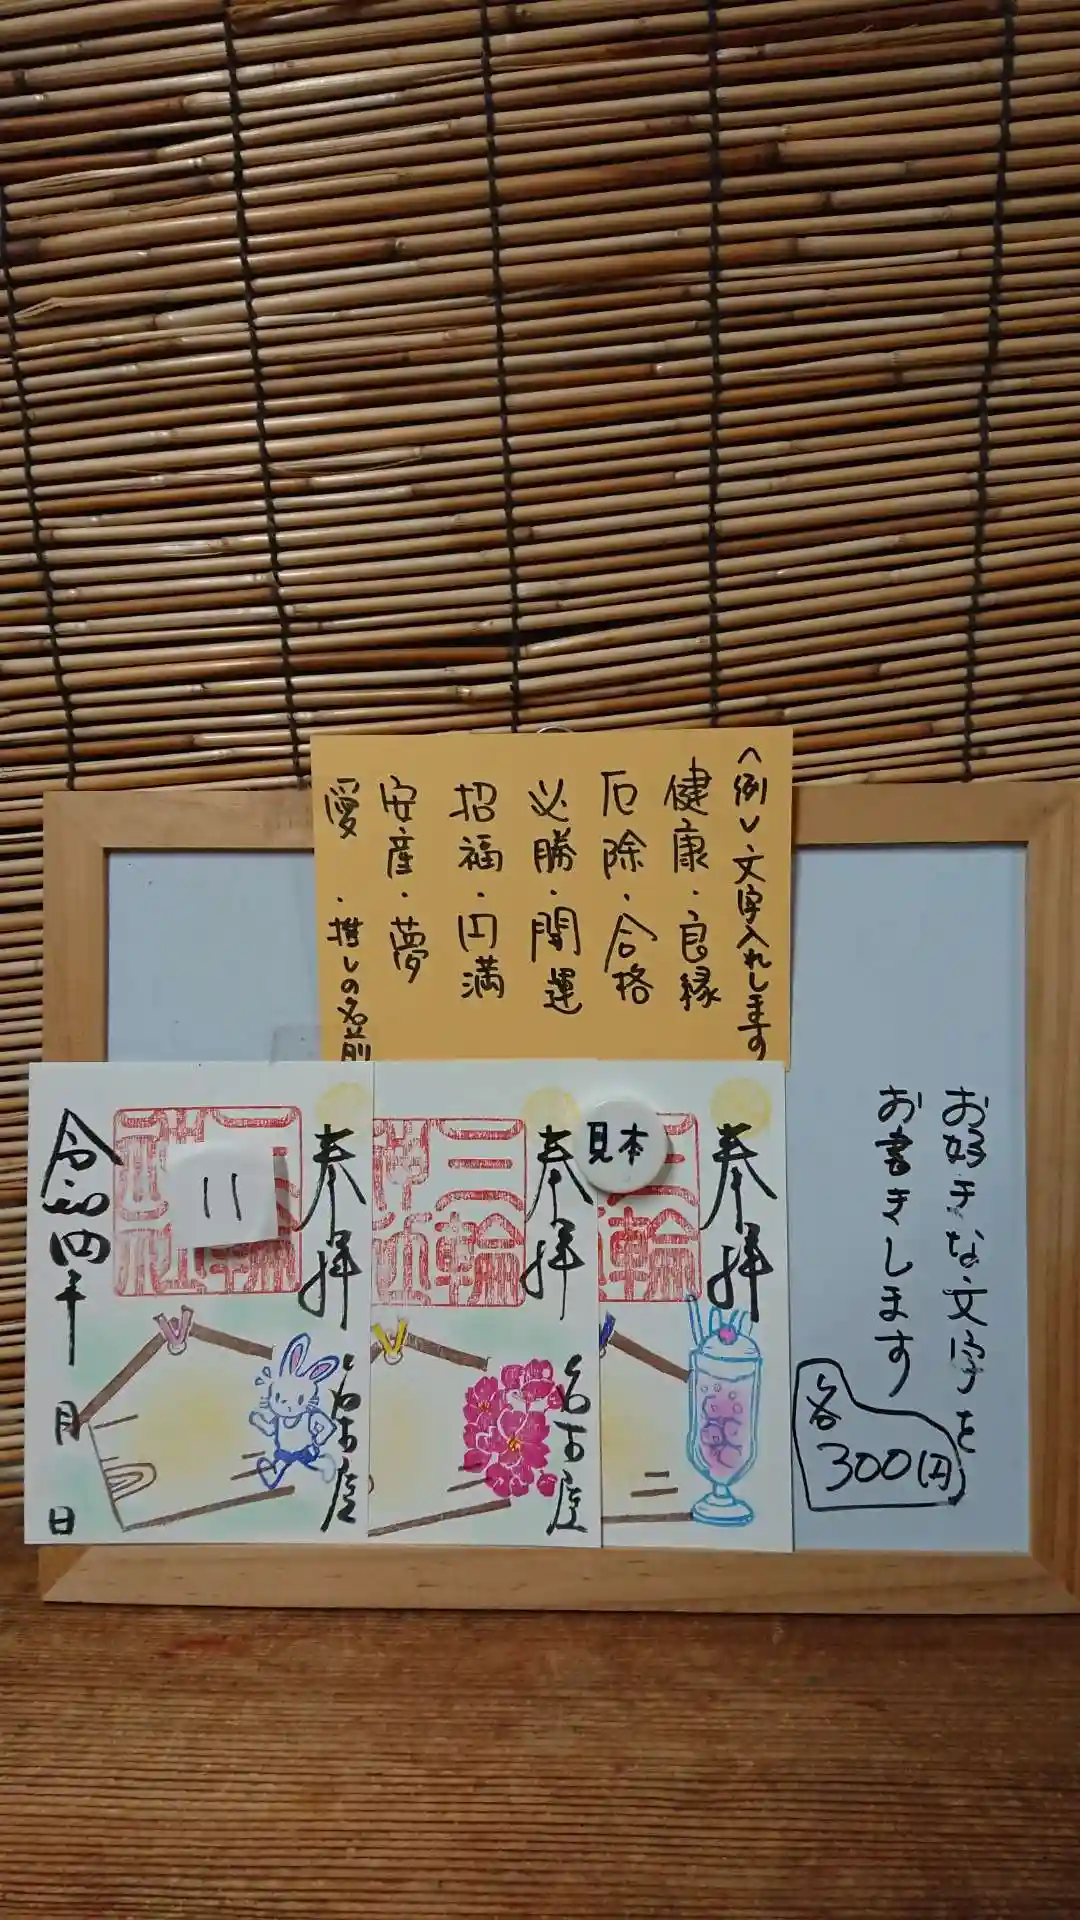 <例>文字入れします
健康・良縁
厄除・合格
必勝・開運
招福・円満
安産・夢
愛・推しの名前
お好きな文字を
お書きします
各
300円
奉拝
名古屋
二
見本
奉拝
三輪
名古屋
奉拝
11
名古屋
令和四年 月 日